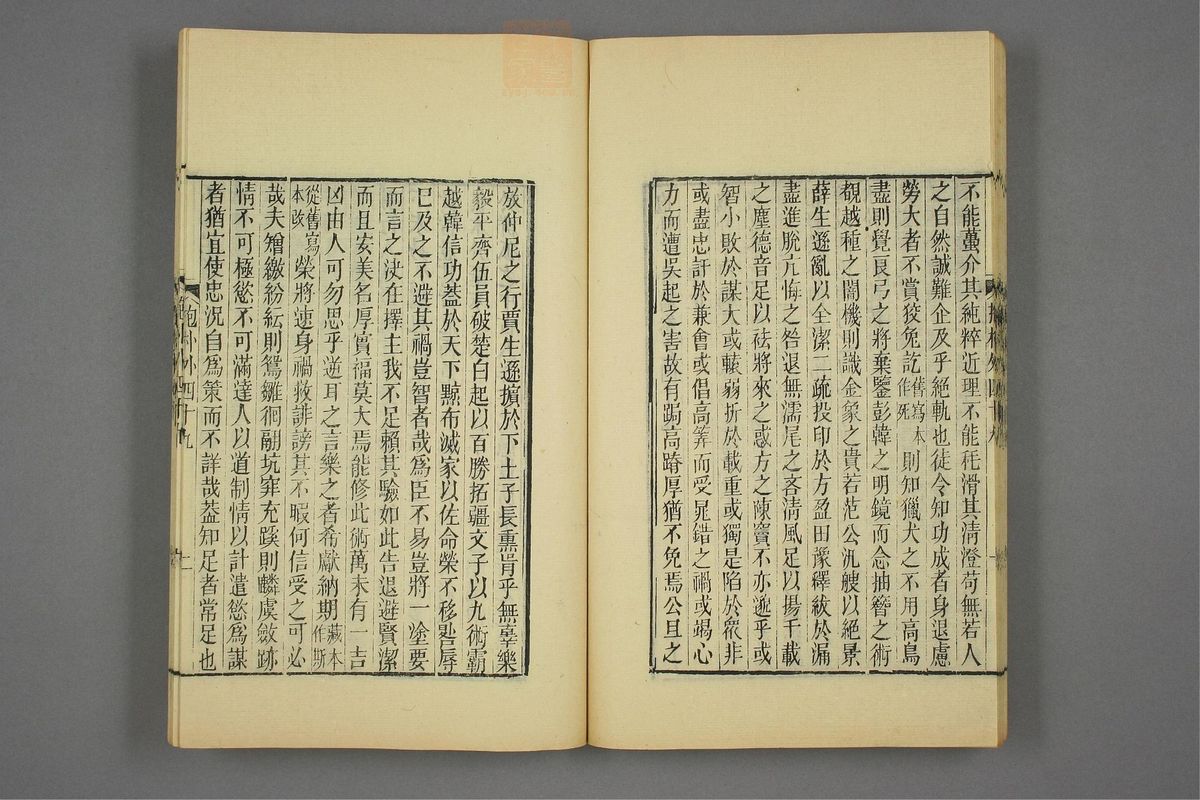 不能蠆介其純粹近理不能秏滑其淸澄苟無若人
之自然誠難企及乎絕軌也徒令知功成者身退慮
勞大者不賞狡兔訖舊寫本作死則知獵犬之不用高鳥
盡則覺良弓之將棄鑒彭韓之明鏡而念抽簪之術
覩越種之闇機則識金象之貴若范公汎艘以絕景
薛生遜亂以全潔二疏投印於方盈田豫釋紱於漏
盡進脫亢悔之咎退無濡尾之吝淸風足以揚千載
之塵德音足以祛將來之惑方之陳竇不亦邈乎或
智小敗於謀大或轅弱折於載重或獨是陷於衆非
或盡忠訐於兼會或倡高筭而受晁錯之禍或竭心
力而遭吳起之害故有跼高蹐厚猶不免焉公旦之
放仲尼之行賈生遜擯於下土子長熏胥乎無辜樂
毅平齊伍員破楚白起以百勝拓疆文子以九術霸
越韓信功蓋於天下黥布滅家以佐命榮不移晷辱
已及之不避其禍豈智者哉爲臣不易豈將一塗要
而言之決在擇主我不足賴其驗如此告退避賢潔
而且安美名厚實福莫大焉能修此術萬未有一吉
凶由人可勿思乎逆耳之言樂之者希獻納期藏本作斯
從舊寫本改榮將速身禍救誹謗其不暇何信受之可必
哉夫矰繳紛紜則鴛雛徊翮坑穽充蹊則麟虞斂跡
情不可極慾不可滿達人以道制情以計遣慾爲謀
者猶宜使忠況自爲策而不詳哉蓋知足者常足也
抱朴外四十九 二